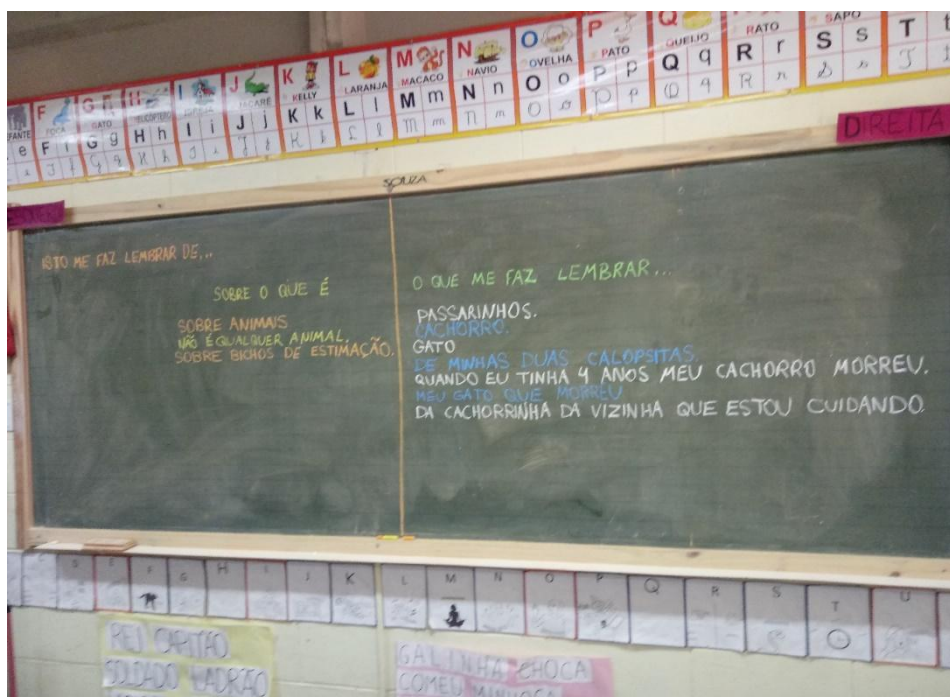 F G H I J K L M N O P Q R S T
FOCA GATO JACARÉ KELLY LARANJA MACACO NAVIO OVELHA PATO QUEIJO RATO SAPO
e F f G g H h I i J j K k L l M m N n O o P p Q q R r S s T t
DIREITA
SOUZA
ISTO ME FAZ LEMBRAR DE...
SOBRE O QUE É
SOBRE ANIMAIS
NÃO É QUALQUER ANIMAL.
SOBRE BICHOS DE ESTIMAÇÃO.
O QUE ME FAZ LEMBRAR...
PASSARINHOS.
CACHORRO.
GATO
DE MINHAS DUAS CALOPSITAS.
QUANDO EU TINHA 4 ANOS MEU CACHORRO MORREU.
MEU GATO QUE MORREU
DA CACHORRINHA DA VIZINHA QUE ESTOU CUIDANDO.
F G H I J K L M N O P Q R S T U
REI CAPITÃO
SOLDADO LADRÃO
GALINHA CHOCA
COMEU MINHOCA